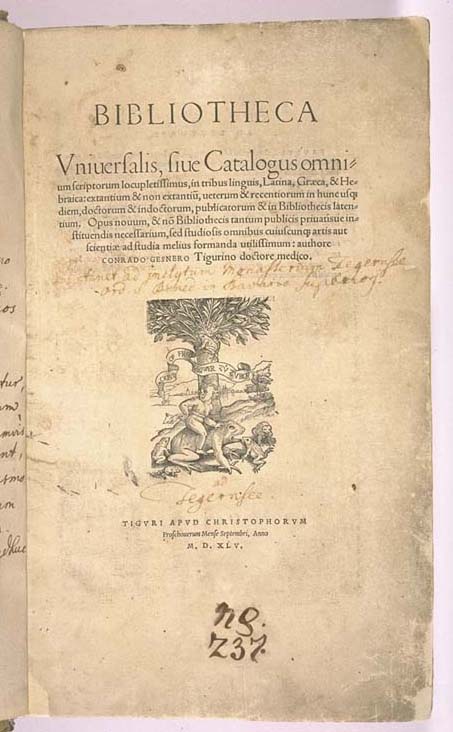 BIBLIOTHECA
Vniuersalis, siue Catalogus omni-
um scriptorum locupletissimus, in tribus linguis, Latina, Græca, & He-
braica: extantium & non extantiũ, ueterum & recentiorum in hunc usq
diem, doctorum & indoctorum, publicatorum & in Bibliothecis laten-
tium. Opus nouum, & nõ Bibliothecis tantum publicis priuatisue in-
stituendis necessarium, sed studiosis omnibus cuiuscunq artis aut
scientiæ ad studia melius formanda utilissimum: authore
CONRADO GESNERO Tigurino doctore medico.
ad inclytum Monasterium Tegernsee
in Bavaria
CHRISTOF FROSCHOVER ZV ZVRICH
ad
Tegernsee.
TIGVRI APVD CHRISTOPHORVM
Froschouerum Mense Septembri, Anno
M. D. XLV.
ng.
237.